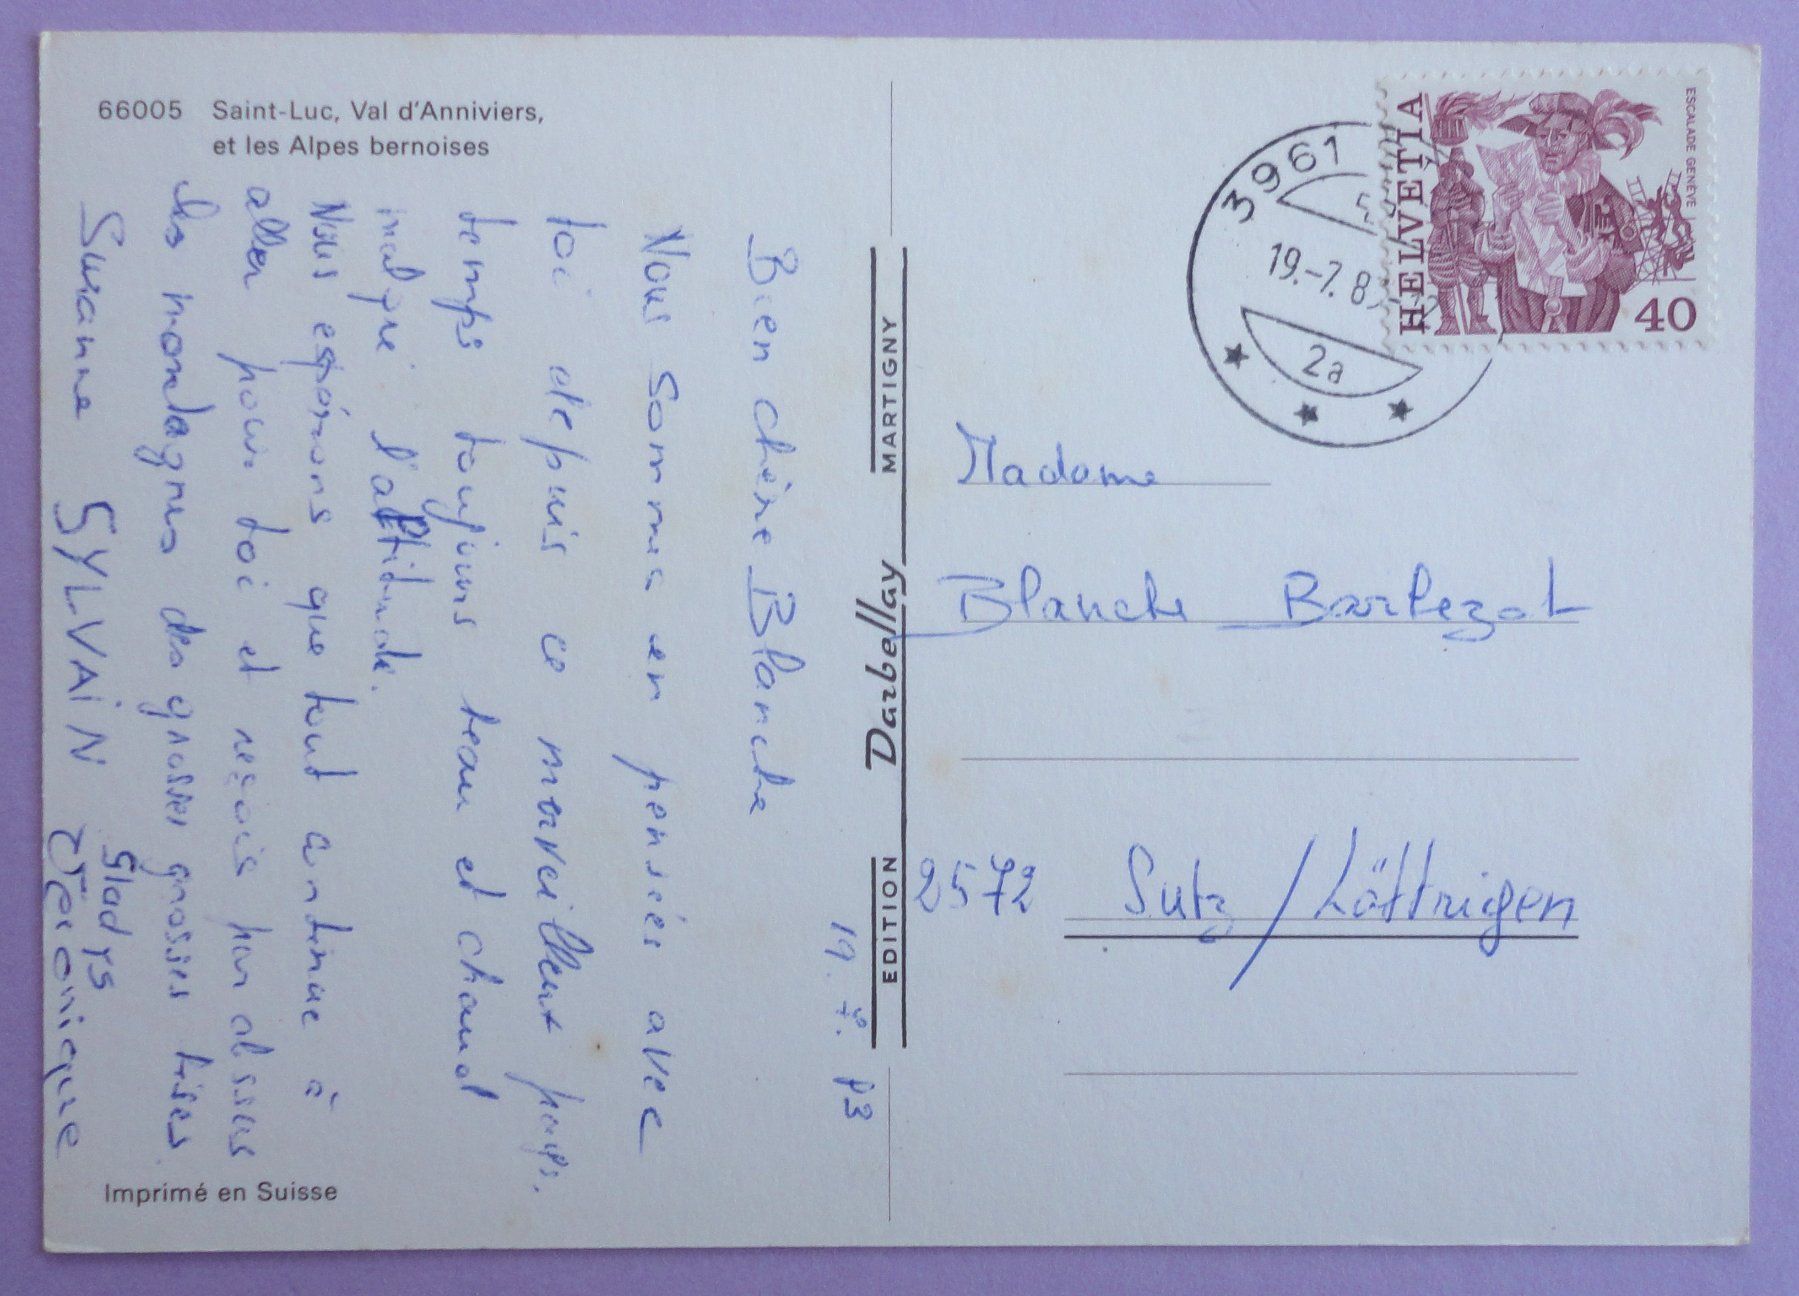 66005 Saint-Luc, Val d'Anniviers,
et les Alpes bernoises
19.7.83
Bien chère Blanche
Nous sommes en pensées avec
toi depuis ce merveilleux pays.
temps toujours beau et chaud
malgré l'altitude.
Nous espérons que tout continue à
aller pour toi et reçois par dessus
les montagnes des grosses grosses bises
Suzanne SYLVAIN Gladys
Véronique
Imprimé en Suisse
EDITION Darbellay MARTIGNY
3961
19.-7.8
2a
HELVETIA
ESCALADE GENÈVE
40
Madame
Blanche Barbezat
2572 Sutz/Lättrigen